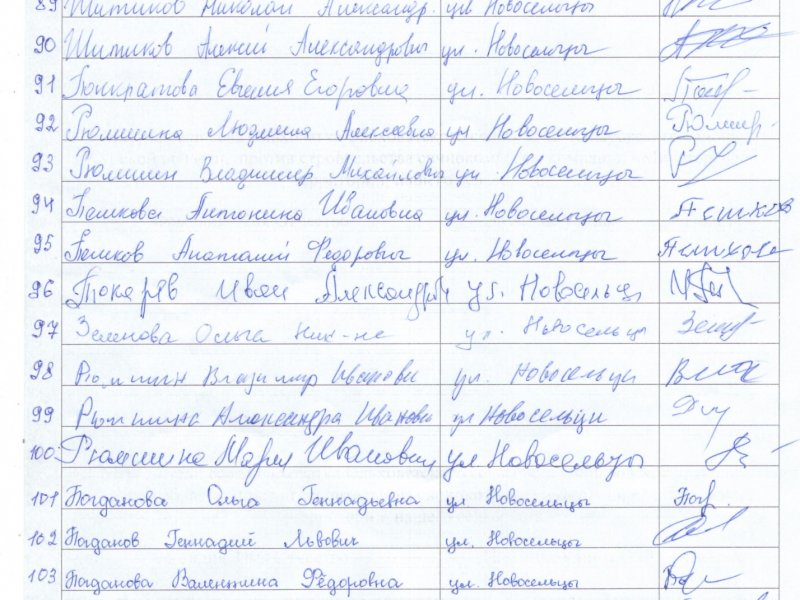 89 Шитиков Николай Александр. ул Новосельцы
90 Шитиков Алексей Александрович ул. Новосельцы
91 Панкратова Евгения Егоровна ул. Новосельцы
92 Рюмшина Людмила Алексеевна ул Новосельцы Рюмшин
93 Рюмшин Владимир Михайлович ул. Новосельцы
94 Пешкова Антонина Ивановна ул. Новосельцы Пешкова
95 Пешков Анатолий Федорович ул. Новосельцы Пешкова
96 Токарев Иван Александр ул. Новосельц
97 Зеленова Ольга Ник-на ул. Новосельцы
98 Рюмшин Владимир Иванови ул. Новосельци
99 Рюмшина Александра Ивановн ул Новосельци
100 Рюмшина Мария Ивановн ул Новосельцы
101 Богданова Ольга Геннадьевна ул Новосельцы Бог.
102 Богданов Геннадий Львович ул. Новосельцы
103 Богданова Валентина Фёдоровна ул. Новосельцы